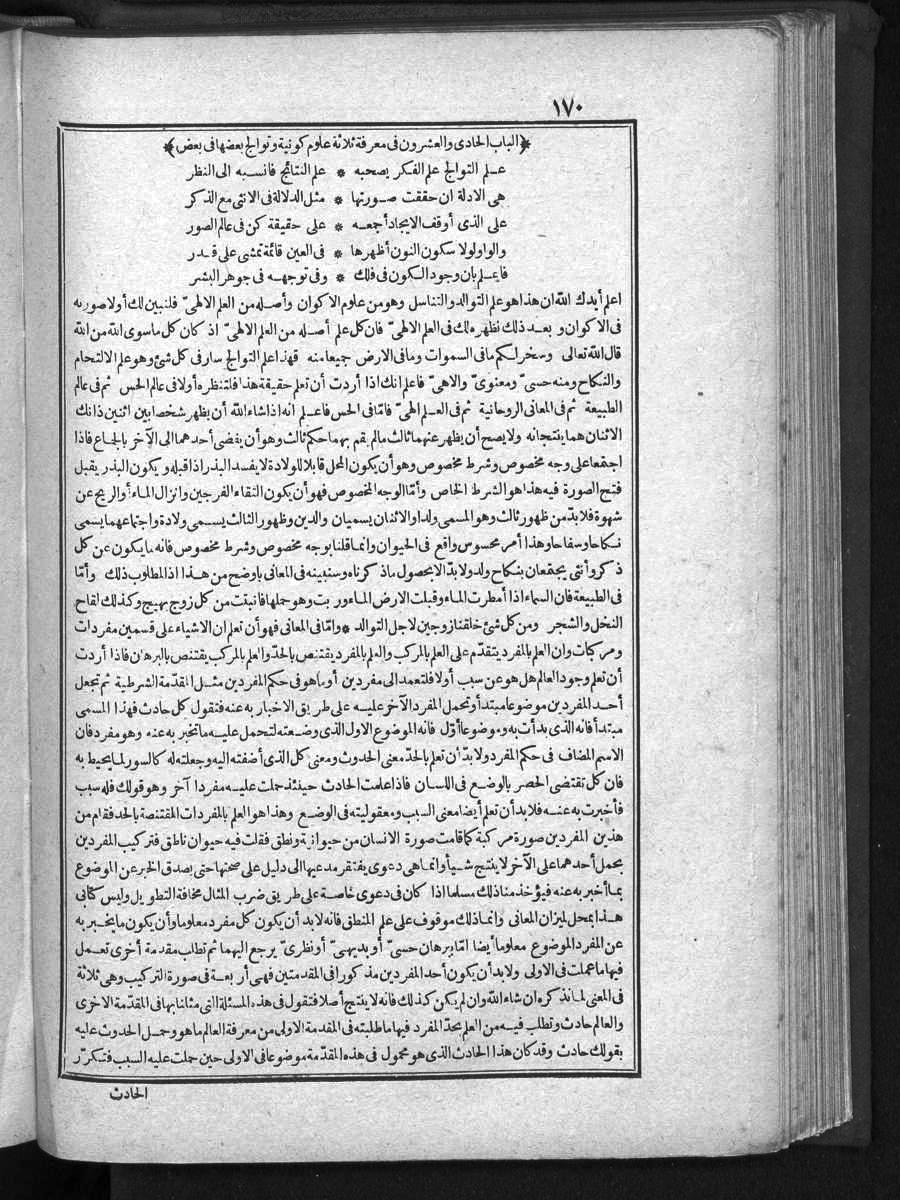 ١٧٠
﴿الباب الحادى والعشرون فى معرفة ثلاثة علوم كونية وتوالج بعضها فى بعض﴾
علم التوالج علم الفكر يصحبه * علم النتائج فانسبه الى النظر
هى الادلة ان حققت صورتها * مثل الدلالة فى الانثى مع الذكر
على الذى أوقف الايجاد أجمعه * على حقيقة كن فى عالم الصور
والواو لولا سكون النون أظهرها * فى العين قائمة تمشى على قدر
فاعلم بان وجود الكون فى فلك * وفى توجهه فى جوهر البشر
اعلم أيدك الله ان هذا هو علم التوالد والتناسل وهو من علوم الاكوان وأصله من العلم الالهىّ فلنبين لك أولا صورته
فى الاكوان وبعد ذلك نظهره لك فى العلم الالهىّ فان كل علم أصله من العلم الالهىّ اذ كان كل ما سوى الله من الله
قال الله تعالى وسخر لكم ما فى السموات وما فى الارض جميعا منه فهذا علم التوالج سار فى كل شئ وهو علم الالتحام
والنكاح ومنه حسىّ ومعنوىّ والاهىّ فاعلم انك اذا أردت أن تعلم حقيقة هذا فلتنظره أولا فى عالم الحس ثم فى عالم
الطبيعة ثم فى المعانى الروحانية ثم فى العلم الالهىّ فامّا فى الحس فاعلم انه اذا شاء الله أن يظهر شخصا بين اثنين ذانك
الاثنان هما ينتجانه ولا يصح أن يظهر عنهما ثالث مالم يقم بهما حكم ثالث وهو أن يفضى أحدهما الى الآخر بالجماع فاذا
اجتمعا على وجه مخصوص وشرط مخصوص وهو أن يكون المحل قابلا للولادة لا يفسد البذر اذا قبله ويكون البذر يقبل
فتح الصورة فيه هذا هو الشرط الخاص وأمّا الوجه المخصوص فهو أن يكون التقاء الفرجين وانزال الماء أو الريح عن
شهوة فلا بدّ من ظهور ثالث وهو المسمى ولدا والاثنان يسميان والدين وظهور الثالث يسمى ولادة واجتماعهما يسمى
نكاحا وسفاحا وهذا أمر محسوس واقع فى الحيوان وانما قلنا بوجه مخصوص وشرط مخصوص فانه ما يكون عن كل
ذكر وأنثى يجتمعان بنكاح ولد ولا بدّ الا بحصول ما ذكرناه وسنبينه فى المعانى باوضح من هذا اذ المطلوب ذلك وأمّا
فى الطبيعة فان السماء اذا أمطرت الماء وقبلت الارض الماء وربت وهو حملها فانبتت من كل زوج بهيج وكذلك لقاح
النخل والشجر ومن كل شئ خلقنا زوجين لاجل التوالد * وامّا فى المعانى فهو أن تعلم ان الاشياء على قسمين مفردات
ومركبات وان العلم بالمفرد يتقدّم على العلم بالمركب والعلم بالمفرد يقتنص بالحدّ والعلم بالمركب يقتنص بالبرهان فاذا أردت
أن تعلم وجود العالم هل هو عن سبب أولا فلتعمد الى مفردين أو ما هو فى حكم المفردين مثل المقدّمة الشرطية ثم تجعل
أحد المفردين موضوعا مبتدأ وتحمل المفرد الآخر عليه على طريق الاخبار به عنه فتقول كل حادث فهذا المسمى
مبتدأ فانه الذى بدأت به وموضوعا أوّل فانه الموضوع الاول الذى وضعته لتحمل عليه ما تخبر به عنه وهو مفرد فان
الاسم المضاف فى حكم المفرد ولا بدّ أن تعلم بالحدّ معنى الحدوث ومعنى كل الذى أضفته اليه وجعلته له كالسور لما يحيط به
فان كل تقتضى الحصر بالوضع فى اللسان فاذا علمت الحادث حينئذ حملت عليه مفردا آخر وهو قولك فله سبب
فأخبرت به عنه فلا بد أن تعلم أيضا معنى السبب ومعقوليته فى الوضع وهذا هو العلم بالمفردات المقتنصة بالحد فقام من
هذين المفردين صورة مركبة كما قامت صورة الانسان من حيوانية ونطق فقلت فيه حيوان ناطق فتركيب المفردين
بحمل أحدهما على الآخر لا ينتج شيأ وانما هى دعوى يفتقر مدعيها الى دليل على صحتها حتى يصدق الخبر عن الموضوع
بما أخبر به عنه فيؤخذ منا ذلك مسلما اذا كان فى دعوى خاصة على طريق ضرب المثال مخافة التطويل وليس كتابى
هذا بمحل لميزان المعانى وانما ذلك موقوف على علم المنطق فانه لا بد أن يكون كل مفرد معلوما وأن يكون ما يخبر به
عن المفرد الموضوع معلوما أيضا امّا ببرهان حسىّ أو بديهىّ أو نظرىّ يرجع اليهما ثم تطلب مقدمة أخرى تعمل
فيها ما عملت فى الاولى ولا بد أن يكون أحد المفردين مذكورا فى المقدمتين فهى أربعة فى صورة التركيب وهى ثلاثة
فى المعنى لما نذكره ان شاء الله وان لم يكن كذلك فانه لا ينتج أصلا فتقول فى هذه المسئلة التى مثلنا بها فى المقدّمة الاخرى
والعالم حادث وتطلب فيه من العلم بحدّ المفرد فيها ما طلبته فى المقدمة الاولى من معرفة العالم ما هو وحمل الحدوث عليه
بقولك حادث وقد كان هذا الحادث الذى هو محمول فى هذه المقدّمة موضوعا فى الاولى حين حملت عليه السبب فتكرّر
الحادث